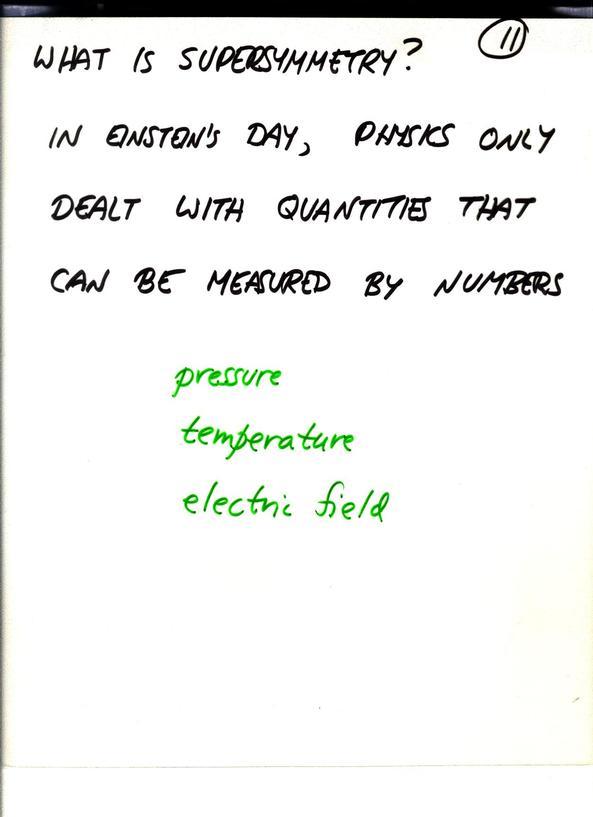 11
WHAT IS SUPERSYMMETRY?
IN EINSTEIN'S DAY, PHYSICS ONLY
DEALT WITH QUANTITIES THAT
CAN BE MEASURED BY NUMBERS
pressure
temperature
electric field